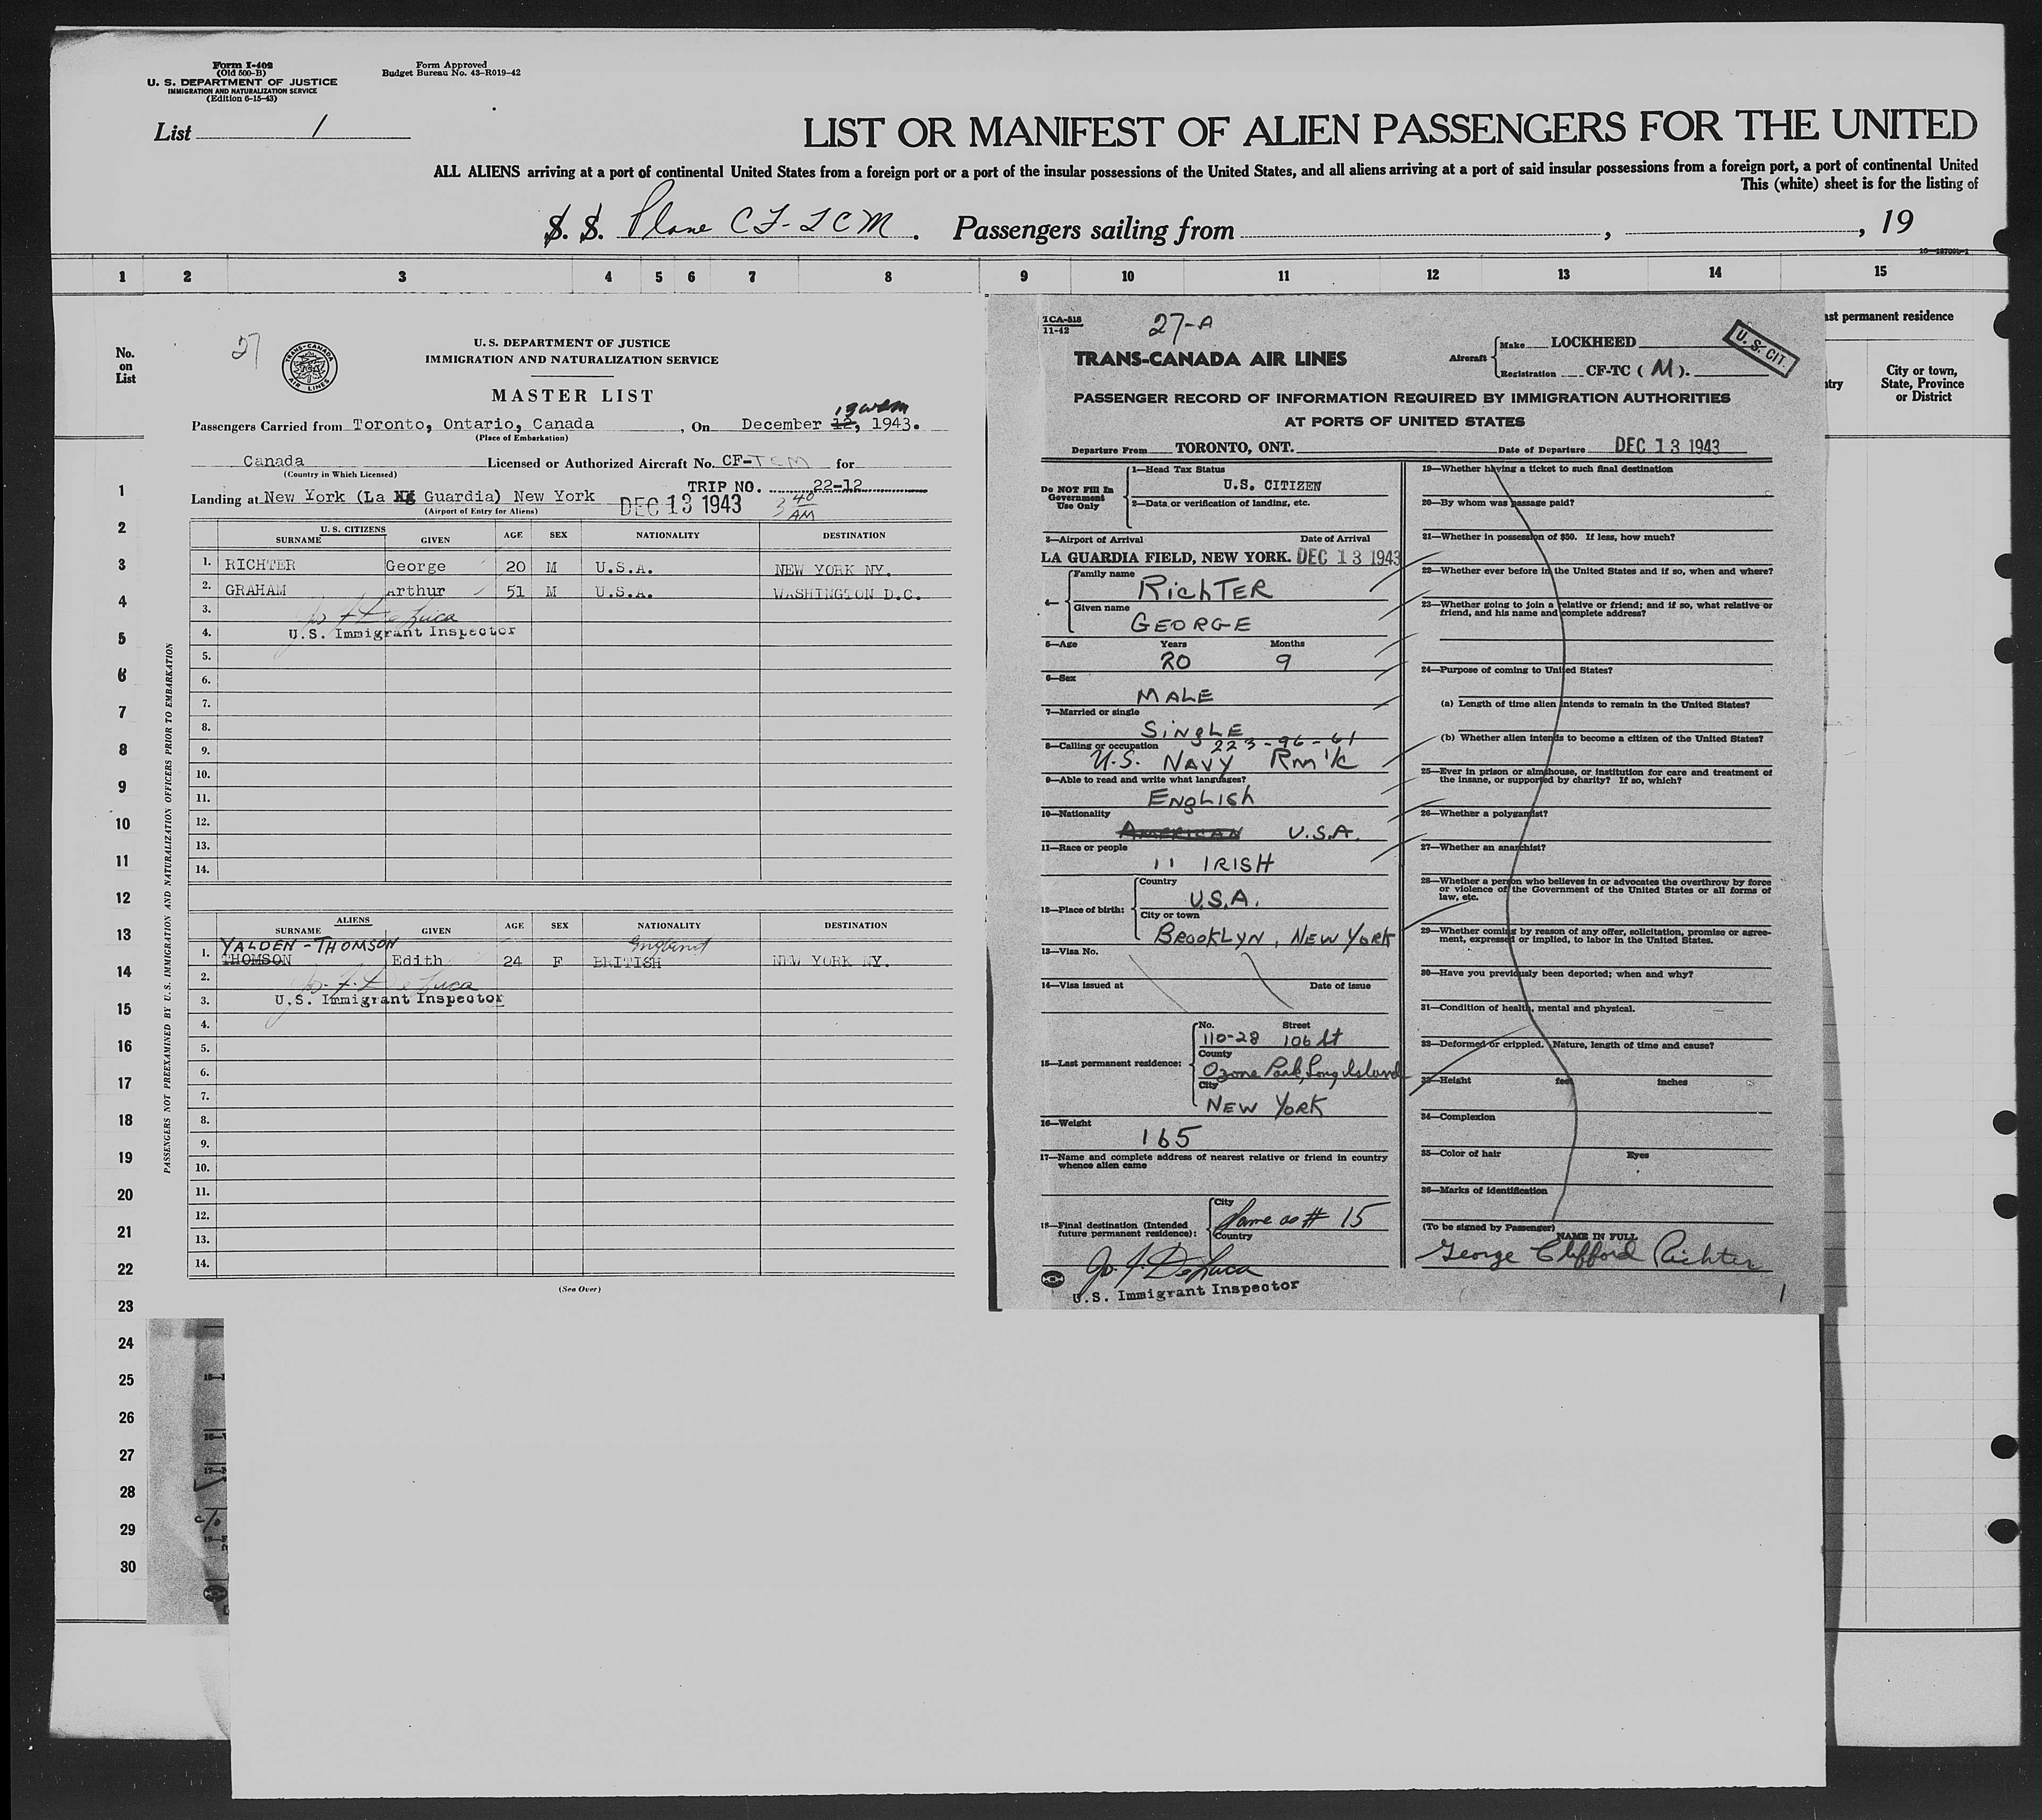 Form I-402
(Old 500-B)
U. S. DEPARTMENT OF JUSTICE
IMMIGRATION AND NATURALIZATION SERVICE
(Edition 6-15-43)
Form Approved
Budget Bureau No. 43-R019-42
List 1
LIST OR MANIFEST OF ALIEN PASSENGERS FOR THE UNITED
ALL ALIENS arriving at a port of continental United States from a foreign port or a port of the insular possessions of the United States, and all aliens arriving at a port of said insular possessions from a foreign port, a port of continental United
This (white) sheet is for the listing of
S. S. Plane CF-TCM. Passengers sailing from , , 19
1 2 3 4 5 6 7 8 9 10 11 12 13 14 15
No.
on
List
1
2
3
4
5
6
7
8
9
10
11
12
13
14
15
16
17
18
19
20
21
22
23
24
25
26
27
28
29
30
27
TRANS-CANADA AIR LINES
U. S. DEPARTMENT OF JUSTICE
IMMIGRATION AND NATURALIZATION SERVICE
MASTER LIST
Passengers Carried from Toronto, Ontario, Canada, On December 12, 1943.
(Place of Embarkation)
Canada Licensed or Authorized Aircraft No. CF-TCM for
(Country in Which Licensed)
TRIP NO. 22-12
Landing at New York (La Guardia) New York DEC 13 1943 3 40 AM
(Airport of Entry for Aliens)
PASSENGERS NOT PREEXAMINED BY U.S. IMMIGRATION AND NATURALIZATION OFFICERS PRIOR TO EMBARKATION
U. S. CITIZENS
SURNAME GIVEN AGE SEX NATIONALITY DESTINATION
1. RICHTER George 20 M U.S.A. NEW YORK NY.
2. GRAHAM Arthur 51 M U.S.A. WASHINGTON D.C.
3. Jo. F. DeLuca
4. U.S. Immigrant Inspector
5.
6.
7.
8.
9.
10.
11.
12.
13.
14.
ALIENS
SURNAME GIVEN AGE SEX NATIONALITY DESTINATION
YALDEN-THOMSON England
1. THOMSON Edith 24 F BRITISH NEW YORK NY.
2. Jo. F. DeLuca
3. U.S. Immigrant Inspector
4.
5.
6.
7.
8.
9.
10.
11.
12.
13.
14.
(See Over)
TCA-518
11-42
27-A
TRANS-CANADA AIR LINES
Aircraft Make LOCKHEED
Registration CF-TC (M).
U. S. CIT.
PASSENGER RECORD OF INFORMATION REQUIRED BY IMMIGRATION AUTHORITIES
AT PORTS OF UNITED STATES
Departure From TORONTO, ONT. Date of Departure DEC 13 1943
Do NOT Fill In
Government
Use Only
1—Head Tax Status
U.S. CITIZEN
2—Data or verification of landing, etc.
3—Airport of Arrival Date of Arrival
LA GUARDIA FIELD, NEW YORK. DEC 13 1943
4— Family name
RICHTER
Given name
GEORGE
5—Age Years Months
20 9
6—Sex
MALE
7—Married or single
SINGLE
8—Calling or occupation 223-96-61
U.S. NAVY RM 1/c
9—Able to read and write what languages?
ENGLISH
10—Nationality
AMERICAN U.S.A.
11—Race or people
11 IRISH
12—Place of birth: Country
U.S.A.
City or town
BROOKLYN, NEW YORK
13—Visa No.
14—Visa issued at Date of issue
15—Last permanent residence: No. Street
110-28 106 St
County
Ozone Park, Long Island
City
NEW YORK
16—Weight
165
17—Name and complete address of nearest relative or friend in country
whence alien came
18—Final destination (Intended
future permanent residence): City
Same as # 15
Country
Jo. F. DeLuca
U.S. Immigrant Inspector
19—Whether having a ticket to such final destination
20—By whom was passage paid?
21—Whether in possession of $50. If less, how much?
22—Whether ever before in the United States and if so, when and where?
23—Whether going to join a relative or friend; and if so, what relative or
friend, and his name and complete address?
24—Purpose of coming to United States?
(a) Length of time alien intends to remain in the United States?
(b) Whether alien intends to become a citizen of the United States?
25—Ever in prison or almshouse, or institution for care and treatment of
the insane, or supported by charity? If so, which?
26—Whether a polygamist?
27—Whether an anarchist?
28—Whether a person who believes in or advocates the overthrow by force
or violence of the Government of the United States or all forms of
law, etc.
29—Whether coming by reason of any offer, solicitation, promise or agree-
ment, expressed or implied, to labor in the United States.
30—Have you previously been deported; when and why?
31—Condition of health, mental and physical.
32—Deformed or crippled. Nature, length of time and cause?
33—Height feet inches
34—Complexion
35—Color of hair Eyes
36—Marks of identification
(To be signed by Passenger)
NAME IN FULL
George Clifford Richter
1
permanent residence
City or town,
State, Province
or District